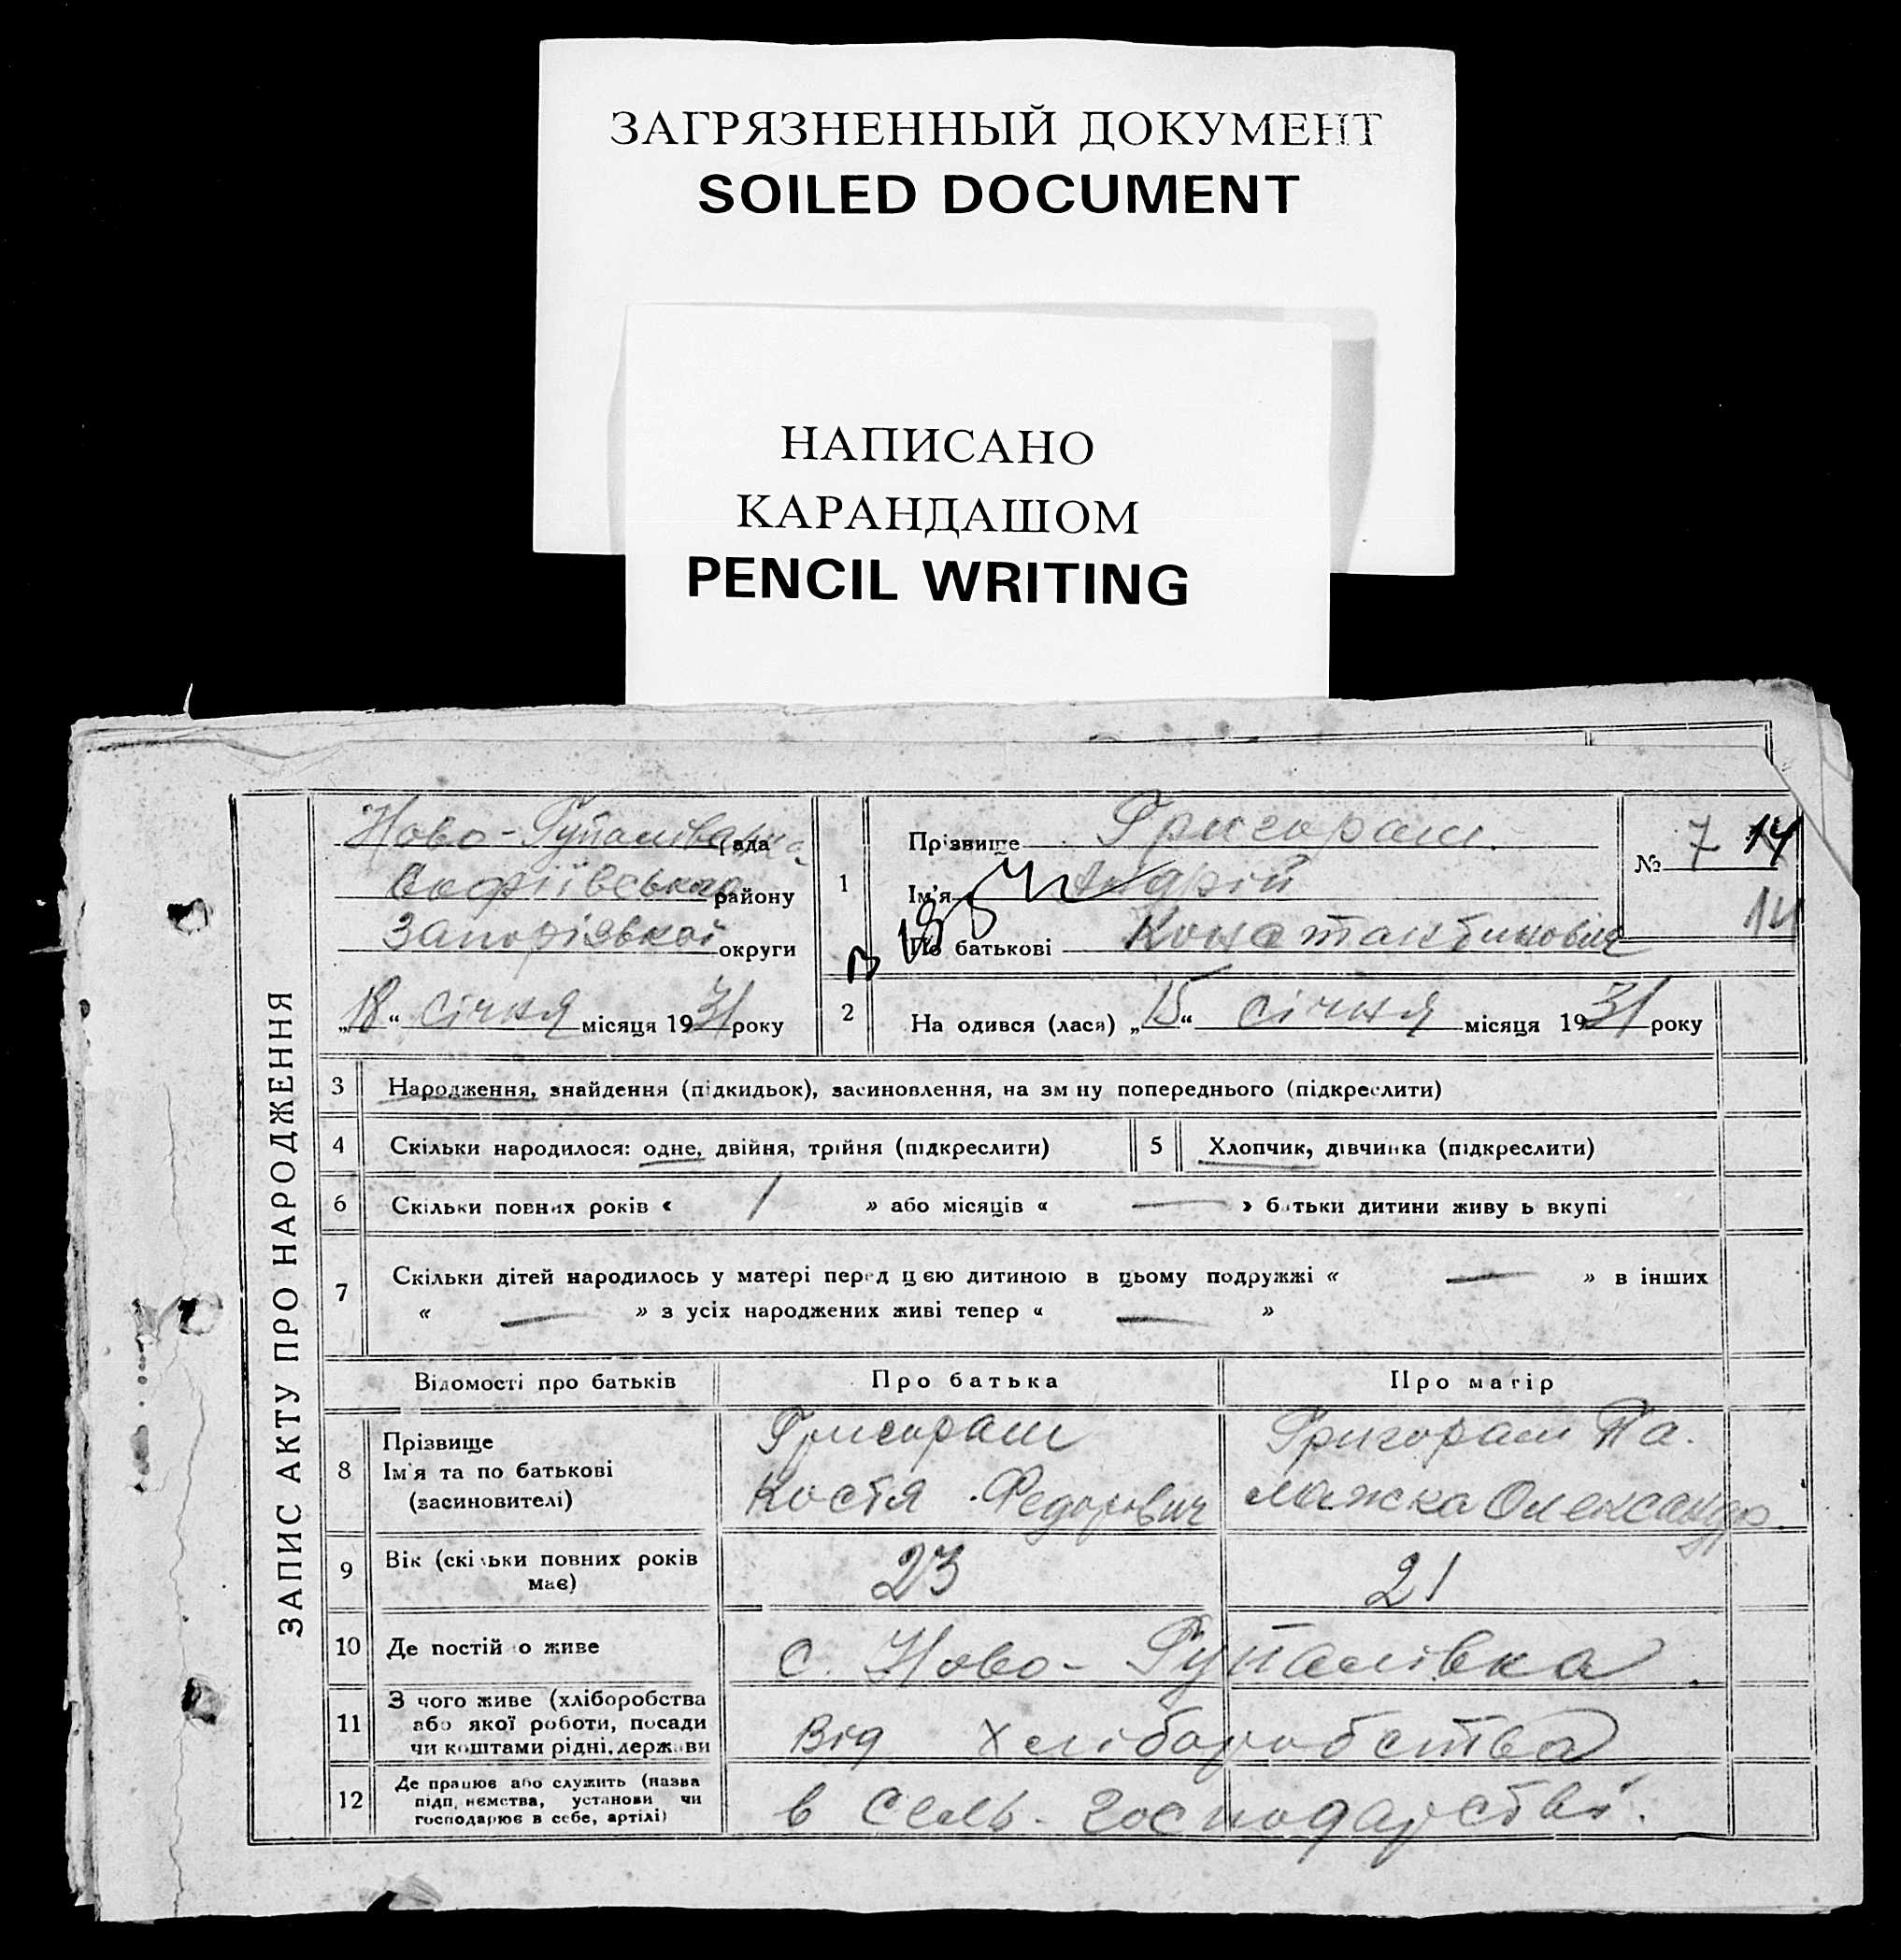 ЗАГРЯЗНЕННЫЙ ДОКУМЕНТ
SOILED DOCUMENT
НАПИСАНО
КАРАНДАШОМ
PENCIL WRITING
ЗАПИС АКТУ ПРО НАРОДЖЕННЯ
Ново-Гупалівська рада
Софіївського району
Запорізької округи
„18“ січня місяця 1931 року
1 Прізвище Григораш.
Ім'я Андрій
По батькові Константинович
№ 7 14
14
2 На одився (лася) „15“ січня місяця 1931 року
3 Народження, знайдення (підкидьок), засиновлення, на зм ну попереднього (підкреслити)
4 Скільки народилося: одне, двійня, трійня (підкреслити) 5 Хлопчик, дівчинка (підкреслити)
6 Скільки повних років « 1 » або місяців « — » батьки дитини живу ь вкупі
7 Скільки дітей народилось у матері перед цією дитиною в цьому подружжі « — » в інших
« — » з усіх народжених живі тепер « — »
Відомості про батьків Про батька Про матір
8 Прізвище Ім'я та по батькові (засиновителі)
Григораш Костя Федорович
Григораш Палажка Олександр.
9 Вік (скільки повних років має) 23 21
10 Де постій о живе с. Ново-Гупалівка.
11 З чого живе (хліборобства
або якої роботи, посади
чи коштами рідні, держави
Від хліборобства
12 Де працює або служить (назва
підп. иємства, установи чи
господарює в себе, артілі)
в Сель-господарстві.